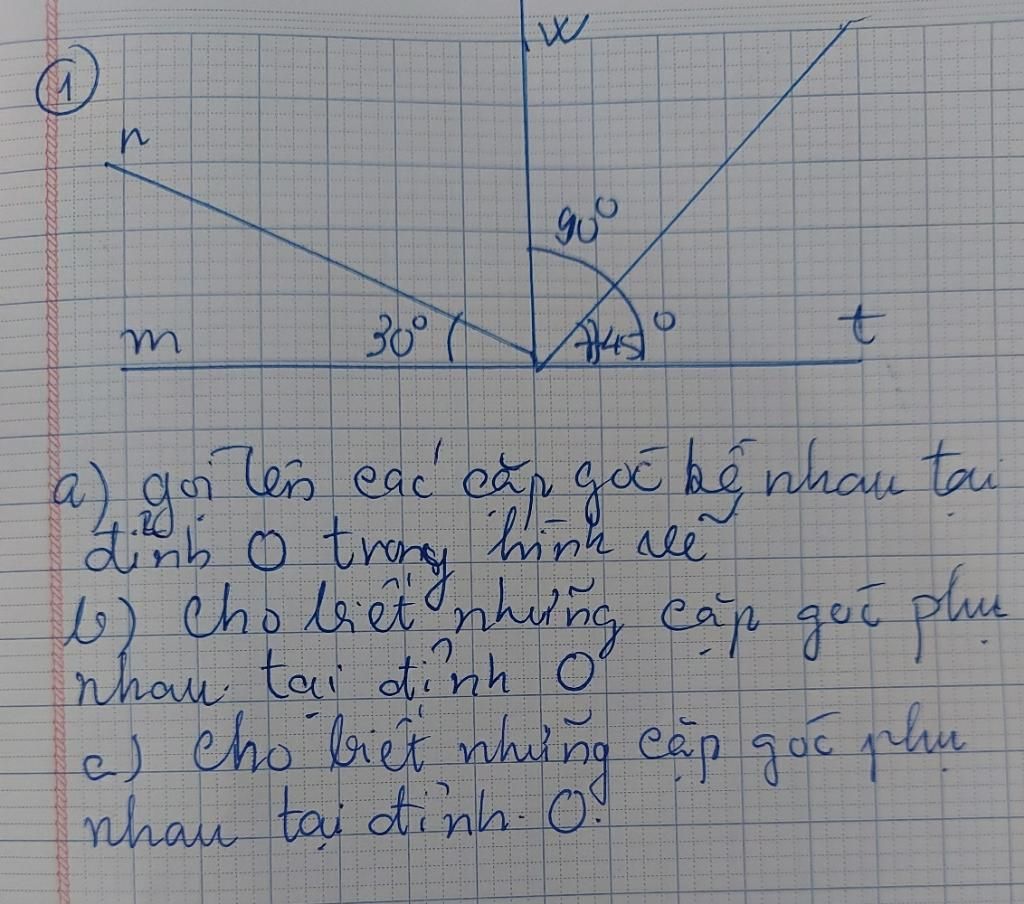 1
w
n
90°
m
30°
45°
t
a) gọi tên các cặp góc kề nhau tại
đỉnh O trong hình vẽ
b) cho biết những cặp góc phụ
nhau tại đỉnh O
c) cho biết những cặp góc phụ
nhau tại đỉnh O.